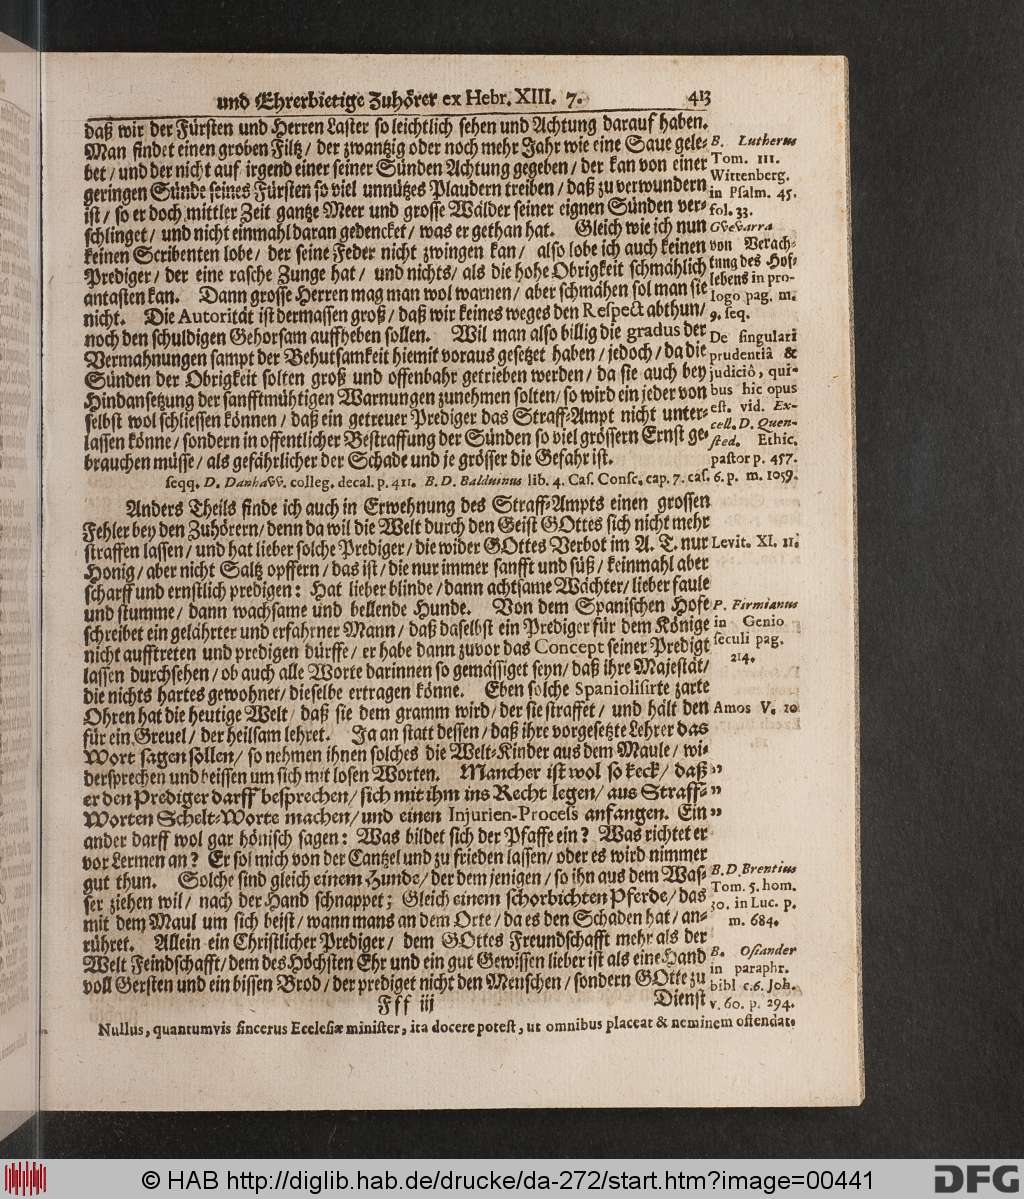 und Ehrerbietige Zuhörer ex Hebr. XIII. 7. 413
daß wir der Fürsten und Herren Laster so leichtlich sehen und Achtung darauf haben.
Man findet einen groben Filtz / der zwantzig oder noch mehr Jahr wie eine Saue gele-
bet / und der nicht auf irgend einer seiner Sünden Achtung gegeben / der kan von einer
geringen Sünde seines Fürsten so viel unnützes Plaudern treiben / daß zu verwundern
ist / so er doch mittler Zeit gantze Meer und grosse Wälder seiner eignen Sünden ver-
schlinget / und nicht einmahl daran gedencket / was er gethan hat. Gleich wie ich nun
keinen Scribenten lobe / der seine Feder nicht zwingen kan / also lobe ich auch keinen
Prediger / der eine rasche Zunge hat / und nichts / als die hohe Obrigkeit schmählich
antasten kan. Dann grosse Herren mag man wol warnen / aber schmähen sol man sie
nicht. Die Autorität ist dermassen groß / daß wir keines weges den Respect abthun /
noch den schuldigen Gehorsam auffheben sollen. Wil man also billig die gradus der
Vermahnungen sampt der Behutsamkeit hiemit voraus gesetzet haben / jedoch / da die
Sünden der Obrigkeit solten groß und offenbahr getrieben werden / da sie auch bey
Hindansetzung der sanfftmühtigen Warnungen zunehmen solten / so wird ein jeder von
selbst wol schliessen können / daß ein getreuer Prediger das Straff-Ampt nicht unter-
lassen könne / sondern in offentlicher Bestraffung der Sünden so viel grössern Ernst ge-
brauchen müsse / als gefährlicher der Schade und je grösser die Gefahr ist.
B. Lutherus
Tom. III.
Wittenberg.
in Psalm. 45.
fol. 33.
Gvevarra
von Verach-
tung des Hof-
lebens in pro-
logo pag. m.
9. seq.
De singulari
prudentiâ &
judiciô, qui-
bus hic opus
est. vid. Ex-
cell. D. Quen-
sted. Ethic.
pastor p. 457.
seqq. D. Danhavv. colleg. decal. p. 411. B. D. Balduinus lib. 4. Cas. Consc. cap. 7. cas. 6. p. m. 1059.
Anders Theils finde ich auch in Erwehnung des Straff-Ampts einen grossen
Fehler bey den Zuhörern / denn da wil die Welt durch den Geist GOttes sich nicht mehr
straffen lassen / und hat lieber solche Prediger / die wider GOttes Verbot im A. T. nur
Honig / aber nicht Saltz opffern / das ist / die nur immer sanfft und süß / keinmahl aber
scharff und ernstlich predigen: Hat lieber blinde / dann achtsame Wächter / lieber faule
und stumme / dann wachsame und bellende Hunde. Von dem Spanischen Hofe
schreibet ein gelährter und erfahrner Mann / daß daselbst ein Prediger für dem Könige
nicht aufftreten und predigen dürffe / er habe dann zuvor das Concept seiner Predigt
lassen durchsehen / ob auch alle Worte darinnen so gemässiget seyn / daß ihre Majestät /
die nichts hartes gewohnet / dieselbe ertragen könne. Eben solche Spaniolisirte zarte
Ohren hat die heutige Welt / daß sie dem gramm wird / der sie straffet / und hält den
für ein Greuel / der heilsam lehret. Ja an statt dessen / daß ihre vorgesetzte Lehrer das
Wort sagen sollen / so nehmen ihnen solches die Welt-Kinder aus dem Maule / wi-
dersprechen und beissen um sich mit losen Worten. Mancher ist wol so keck / daß „
er den Prediger darff besprechen / sich mit ihm ins Recht legen / aus Straff- „
Worten Schelt-Worte machen / und einen Injurien-Process anfangen. Ein „
ander darff wol gar hönisch sagen: Was bildet sich der Pfaffe ein? Was richtet er
vor Lermen an? Er sol mich von der Cantzel und zu frieden lassen / oder es wird nimmer
gut thun. Solche sind gleich einem Hunde / der dem jenigen / so ihn aus dem Was-
ser ziehen wil / nach der Hand schnappet; Gleich einem schorbichten Pferde / das
mit dem Maul um sich beist / wann mans an dem Orte / da es den Schaden hat / an-
rühret. Allein ein Christlicher Prediger / dem GOttes Freundschafft mehr als der
Welt Feindschafft / dem des Höchsten Ehr und ein gut Gewissen lieber ist als eine Hand
voll Gersten und ein bissen Brod / der prediget nicht den Menschen / sondern GOtte zu
Levit. XI. 11.
P. Firmianus
in Genio
seculi pag.
214.
Amos V. 10
B. D. Brentius
Tom. 5. hom.
30. in Luc. p.
m. 684.
B. Osiander
in paraphr.
bibl c. 6. Joh.
v. 60. p. 294.
Fff iij Dienst
Nullus, quantumvis sincerus Ecclesiæ minister, ita docere potest, ut omnibus placeat & neminem offendat.
© HAB http://diglib.hab.de/drucke/da-272/start.htm?image=00441
DFG